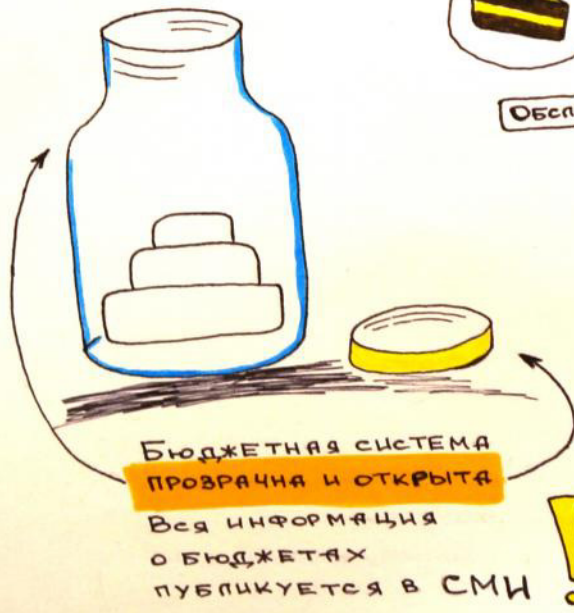 Бюджетная система
прозрачна и открыта
Вся информация
о бюджетах
публикуется в СМИ
!